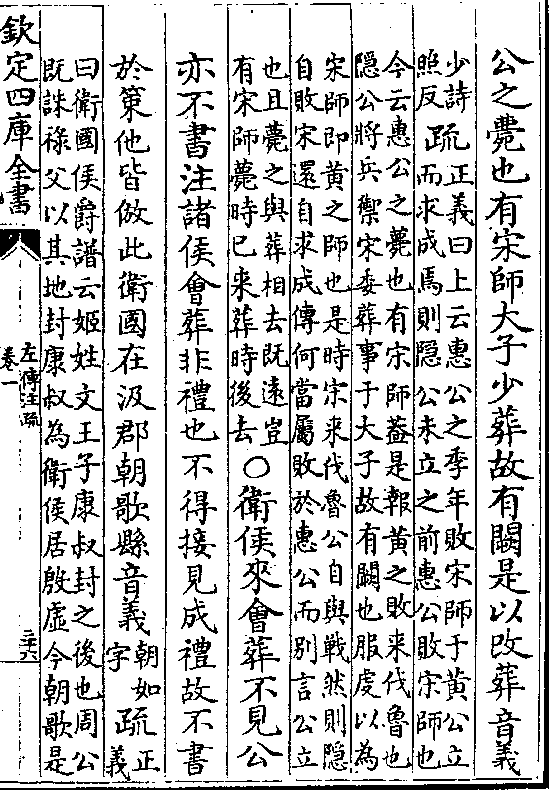 公之薨也有宋師大子少葬故有闕是以改葬音義
少詩
照反
疏
正義曰上云惠公之季年敗宋師于黄公立
而求成焉則隐公未立之前惠公敗宋師也
今云惠公之薨也有宋師葢是報黄之敗来伐魯也
隐公將兵禦宋委葬事于大子故有闕也服虔以為
宋師即黄之師也是時宋来伐魯公自與戰然則隐
自敗宋還自求成傳何當屬敗於惠公而别言公立
也且薨之與葬相去既遠豈
有宋師薨時已来葬時後去
○衛侯來會葬不見公
亦不書注諸侯會葬非禮也不得接見成禮故不書
於策他皆倣此衛國在汲郡朝歌縣音義
朝如
字
疏
正
義
曰衛國侯爵譜云姬姓文王子康叔封之後也周公
既誅祿父以其地封康叔為衛侯居殷虚今朝歌是
欽定四庫全書
左傳注疏
卷一
三六